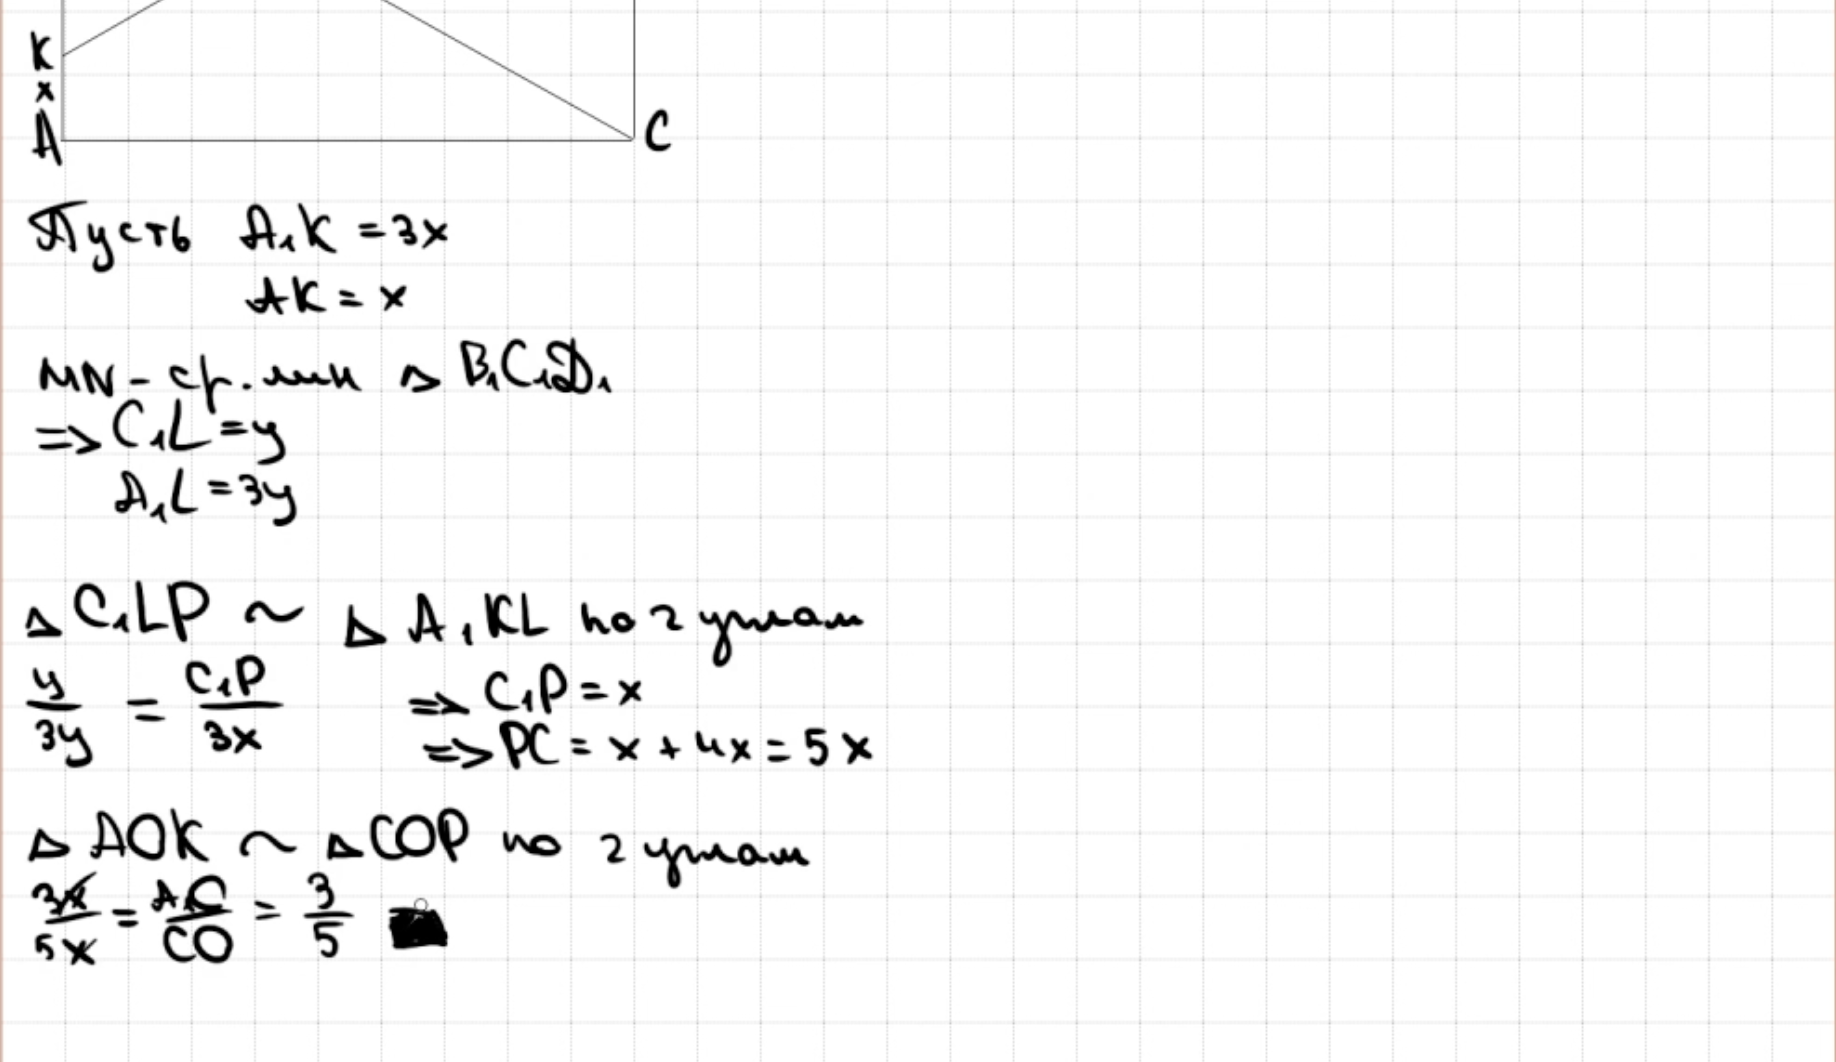 K
x
A
C
Пусть A₁K = 3x
AK = x
MN - ср. лин △ B₁C₁D₁
=> C₁L = y
A₁L = 3y
△ C₁LP ~ △ A₁KL по 2 углам
y/3y = C₁P/3x => C₁P = x
=> PC = x + 4x = 5x
△ AOK ~ △ COP по 2 углам
3x/5x = A₁O/CO = 3/5